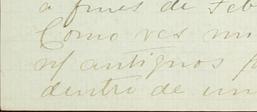 a fines de Feb
Como ves mi
antiguos
dentro de un